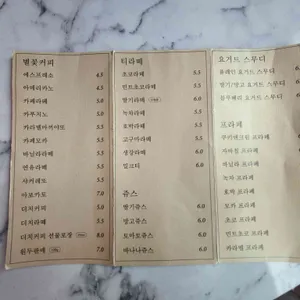 별꽃커피
에스프레소 4.5
아메리카노 4.5
카페라떼 5.0
카푸치노 5.0
카라멜마키아또 5.5
카페모카 5.5
바닐라라떼 5.5
연유라떼 5.5
샤케레또 5.5
아포카토 7.0
더치커피 5.0
더치라떼 5.5
더치커피 선물포장 8.0
원두판매 7.0
티라떼
초코라떼 5.5
민트초코라떼 5.5
딸기라떼 6.0
녹차라떼 5.5
홍차라떼 5.5
고구마라떼 5.5
사랑라떼 6.0
밀크티 6.0
쥬스
딸기쥬스 6.0
망고쥬스 6.0
토마토쥬스 6.0
바나나쥬스 6.0
요거트 스무디
플레인 요거트 스무디
딸기/망고 요거트 스무디
블루베리 요거트 스무디
프라페
쿠키앤크림 프라페
자바칩 프라페
바닐라 프라페
녹차 프라페
홍차 프라페
모카 프라페
초코 프라페
민트초코 프라페
카라멜 프라페